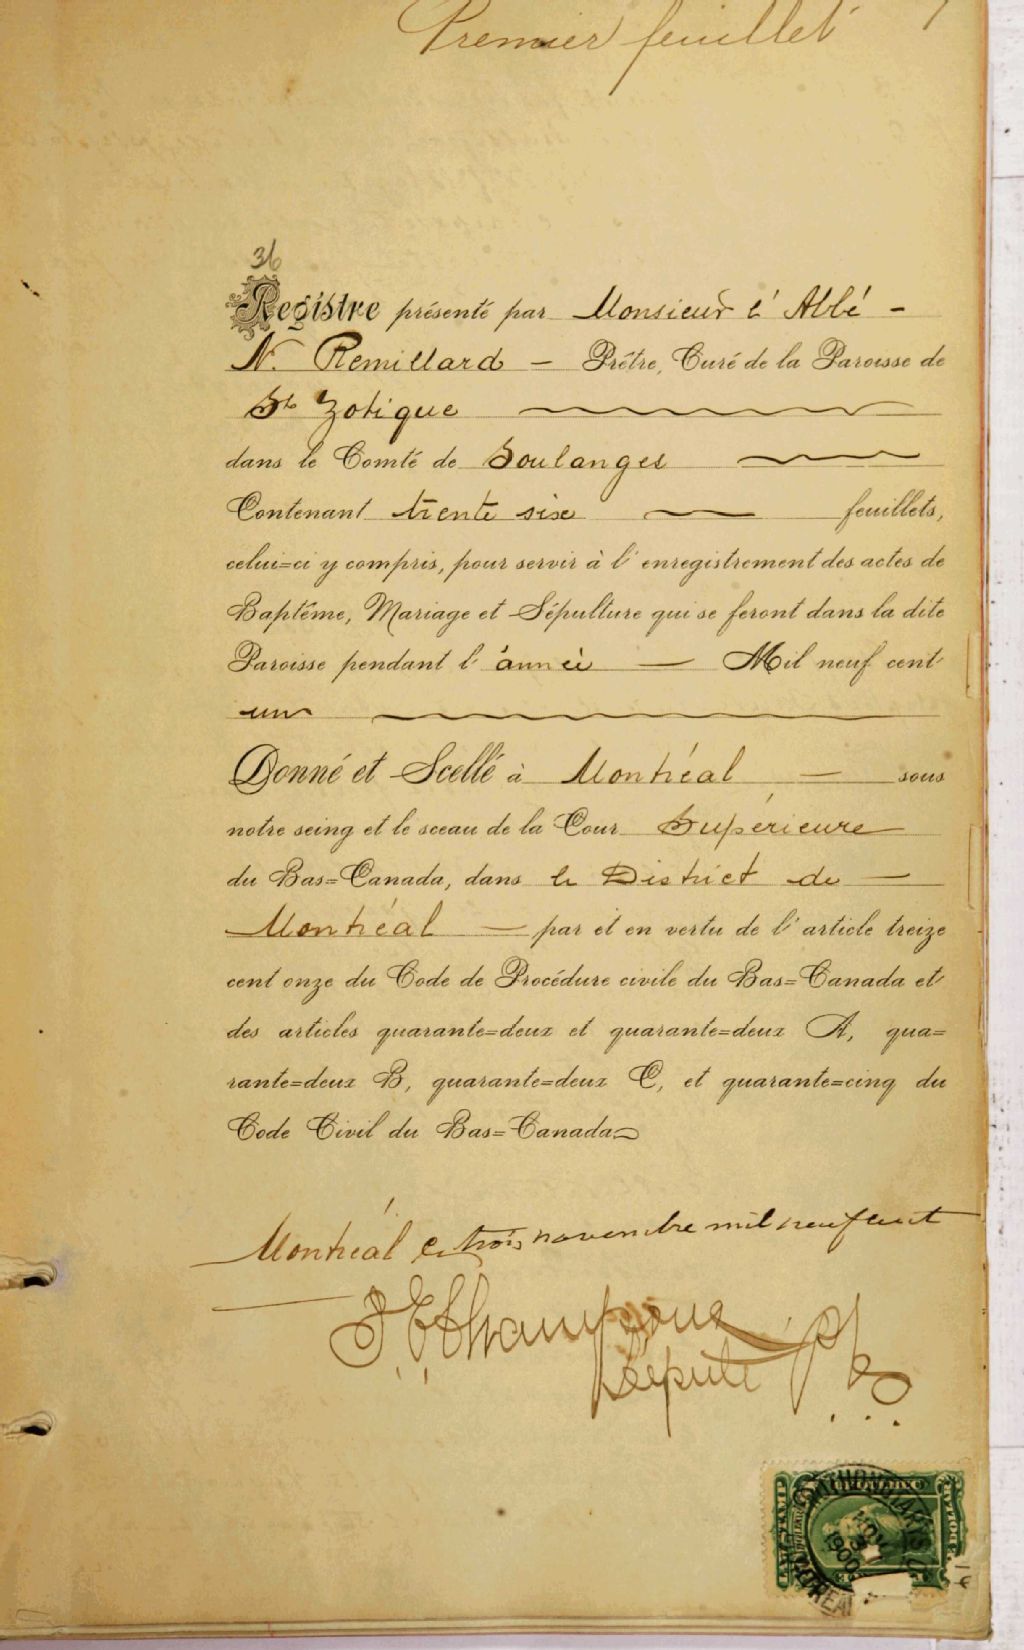 Premier feuillet
36
Registre présenté par Monsieur l'Abbé -
N. Remillard - Prêtre, Curé de la Paroisse de
St Zotique
dans le Comté de Soulanges
Contenant trente six feuillets,
celui=ci y compris, pour servir à l'enregistrement des actes de
Baptême, Mariage et Sépulture qui se feront dans la dite
Paroisse pendant l'année - Mil neuf cent
un
Donné et Scellé à Montréal - sous
notre seing et le sceau de la Cour Supérieure
du Bas=Canada, dans le District de -
Montréal - par et en vertu de l'article treize
cent onze du Code de Procédure civile du Bas=Canada et
des articles quarante=deux et quarante=deux A, qua=
rante=deux B, quarante=deux C, et quarante=cinq du
Code Civil du Bas=Canada
Montréal ce trois novembre mil neuf cent
Champoux
Député P
LAW STAMP
NOV
3
1900
14